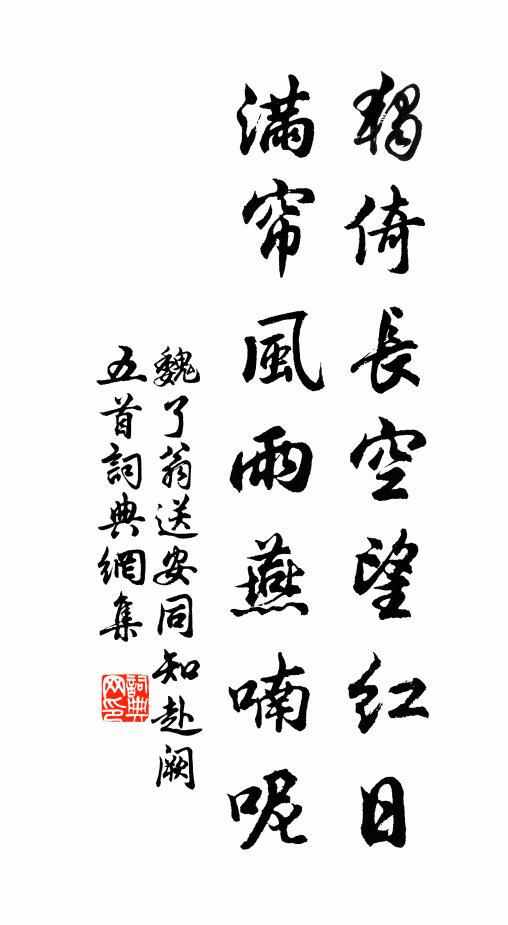 獨倚長空望紅日
滿帘風雨燕喃呢
魏了翁送安同知赴闕
五首詞典網集
詞典
网印